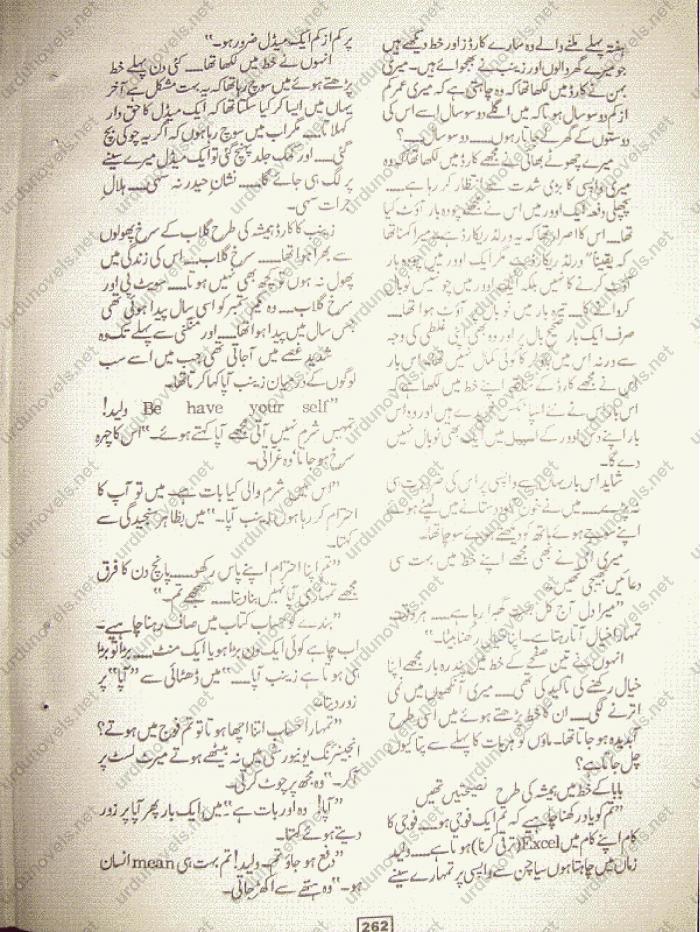 ہفتہ پہلے ملنے والے وہ سارے کارڈز اور خط دیکھے ہیں
جو میرے گھر والوں اور زینب نے بھجوائے ہیں۔ میری
بہن نے کارڈ میں لکھا تھا کہ وہ چاہتی ہے کہ میری عمر کم
از کم دو سو سال ہو تاکہ میں اگلے دو سو سال اسے اس کی
دوستوں کے گھر لے جاتا رہوں...... دو سو سال......؟
میرے چھوٹے بھائی نے مجھے کارڈ میں لکھا تھا کہ وہ
میری واپسی کا بڑی شدت سے انتظار کر رہا ہے......
پچھلی دفعہ ایک اوور میں اس نے مجھے چودہ بار آؤٹ کیا
تھا...... اس کا اصرار تھا کہ یہ ورلڈ ریکارڈ ہے میرا کہنا تھا
کہ یقیناً ورلڈ ریکارڈ ہے مگر ایک اوور میں چودہ بار
آؤٹ کرنے کا نہیں بلکہ ایک اوور میں نوبال
کروانے کا...... تیرہ بار میں نوبال پر آؤٹ ہوا تھا......
صرف ایک بار صحیح بال پر اور وہ بھی اپنی غلطی کی وجہ
سے ورنہ اس میں باؤلر کا کوئی کمال نہیں تھا۔ اس بار
اس نے مجھے کارڈ کے ساتھ اپنے خط میں لکھا ہے کہ
اس بار اس نے نئے ہیں اور وہ اس
بار اپنے دس اوور کے اسپیل میں ایک بھی نوبال نہیں
دے گا۔
شاید اس بار یہاں سے واپسی پر اس کی ضرورت ہی
نہ پڑے...... میں نے خون آلود دستانے میں لپٹے ہوئے
اپنے سوجے ہوئے ہاتھ کو دیکھتے ہوئے سوچا تھا۔
میری امی نے بھی مجھے اپنے خط میں بہت سی
دعائیں بھیجی تھیں۔
”میرا دل آج کل بہت گھبرا رہا ہے...... ہر وقت
تمہارا خیال آتا رہتا ہے۔ اپنا خیال رکھنا بیٹا۔“
انہوں نے تین صفحے کے خط میں پندرہ بار مجھے اپنا
خیال رکھنے کی تاکید کی تھی...... میری آنکھوں میں نمی
اترنے لگی...... ان کا خط پڑھتے ہوئے میں اسی طرح
آبدیدہ ہو جاتا تھا۔ ماؤں کو ہر بات کا پہلے سے پتا کیوں
چل جاتا ہے؟
بابا کے خط میں ہمیشہ کی طرح نصیحتیں تھیں
”تم کو یاد رکھنا چاہیے کہ تم ایک فوجی ہو...... فوجی کا
کام اپنے کام میں Excel (ترقی کرنا) ہوتا ہے...... ولید
زمان میں چاہتا ہوں سیاچن سے واپسی پر تمہارے سینے
پر کم از کم ایک میڈل ضرور ہو۔“
انہوں نے خط میں لکھا تھا...... کئی دن پہلے خط
پڑھتے ہوئے میں سوچ رہا تھا کہ یہ بہت مشکل ہے آخر
یہاں میں ایسا کر کیا سکتا تھا کہ ایک میڈل کا حق دار
کہلاتا...... مگر اب میں سوچ رہا ہوں کہ اگر یہ چوکی بچ
گئی...... اور کمک جلد پہنچ گئی تو ایک میڈل میرے سینے
پر لگ ہی جائے گا...... نشانِ حیدر نہ سہی...... ہلالِ
جرات سہی۔
زینب کا کارڈ ہمیشہ کی طرح گلاب کے سرخ پھولوں
سے بھرا ہوا تھا...... سرخ گلاب...... اس کی زندگی میں
پھول نہ ہوں تو کچھ بھی نہیں ہوتا...... سویٹ پی اور
سرخ گلاب...... وہ ستمبر کو اسی سال پیدا ہوئی تھی
جس سال میں پیدا ہوا تھا...... اور منگنی سے پہلے تک وہ
شدید غصے میں آ جاتی تھی جب میں اسے سب
لوگوں کے درمیان زینب آپا کہا کرتا تھا۔
”Be have your self ولید!
تمہیں شرم نہیں آتی مجھے آپا کہتے ہوئے۔“ اس کا چہرہ
سرخ ہو جاتا وہ غراتی۔
”اس میں شرم والی کیا بات ہے۔ میں تو آپ کا
احترام کر رہا ہوں زینب آپا۔“ میں بظاہر سنجیدگی سے
کہتا۔
”تم اپنا احترام اپنے پاس رکھو...... پانچ دن کا فرق
مجھے تمہاری آپا نہیں بنا دیتا...... سمجھے تم۔“
”بندے کو حساب کتاب میں صاف رہنا چاہیے۔
اب چاہے کوئی ایک دن بڑا ہو یا ایک منٹ...... بڑا تو بڑا
ہی ہوتا ہے زینب آپا......“ میں ڈھٹائی سے ”آپا“ پر
زور دیتا۔
”تمہارا حساب اتنا اچھا ہوتا تو تم فوج میں ہوتے؟
انجینئرنگ یونیورسٹی میں نہ بیٹھے ہوتے میرٹ لسٹ پر
آ کر۔“ وہ مجھ پر چوٹ کرتی۔
”آپا! وہ اور بات ہے“ میں ایک بار پھر آپا پر زور
دیتے ہوئے کہتا۔
”دفع ہو جاؤ تم۔ ولید! تم بہت ہی mean انسان
ہو۔“ وہ ہتھے سے اکھڑ جاتی۔
262
urdunovels.net